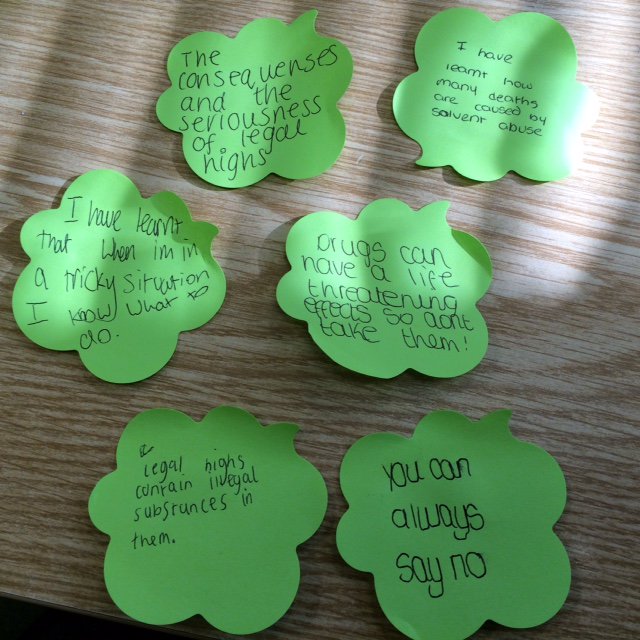 The
consequenses
and the
seriousness
of legal
highs
I have
learnt how
many deaths
are caused by
solvent abuse
I have learnt
that when im in
a tricky situation
I know what to
do.
Drugs can
have a life
threatening
effects so dont
take them!
legal highs
contain illegal
substances in
them.
you can
always
say no